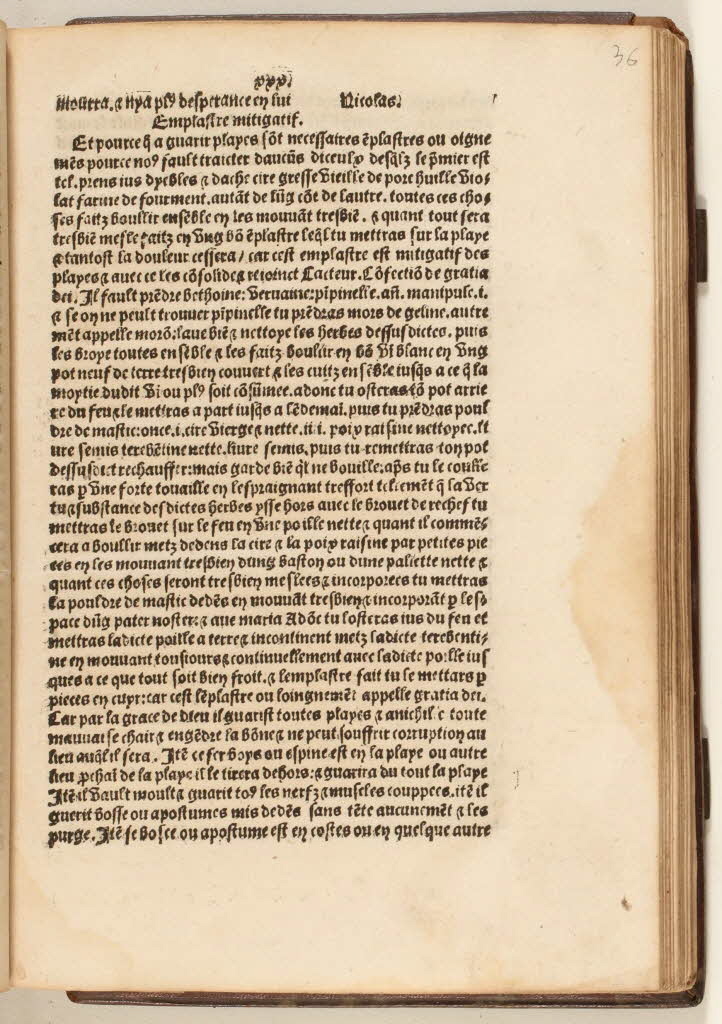 36
xxx.
mourra. & nya pl9 desperance en lui Nicolas.
Emplastre mitigatif.
Et pource q̄ a guarir playes sōt necessaires ēplastres ou oigne
mēs pource no9 fault traicter daucūs diceulx desq̄lz le p̄mier est
tel. prens ius dyebles & dache cire gresse vieille de porc huille vio/
lat farine de fourment. autāt de lūg cōe de lautre. toutes ces cho/
ses faitz boullir ensēble en les mouuāt tresbiē. & quant tout sera
tresbiē mesle faitz en vng bō ēplastre leq̄l tu mettras sur la playe
& tantost la douleur cessera/ car cest emplastre est mitigatif des
playes & auec ce les cōsolide & reioinct Lacteur. Cōfectiō de gratia
dei. Il fault prēdre bethoine: veruaine: pīpinelle. añ. manipule. i.
& se on ne peult trouuer pīpinelle tu prēdras mors de geline. autre
mēt appelle morō: laue biē & nettoye les herbes dessusdictes. puis
les broye toutes ensēble & les faitz boullir en bō vī blanc en vng
pot neuf de terre tresbien couuert & les cuitz ensēble iusq̄s a ce q̄ la
moytie dudit vī ou pl9 soit cōsūmee. adonc tu osteras tō pot arrie
re du feu & le mettras a part iusq̄s a lēdemaī. puis tu prēdras poul
dre de mastic: once. i. cire vierge & nette. ii i. poix raisine nettoyee. li
ure semis terebētine nette. liure semis. puis tu remettras ton pot
dessusdict rechauffer: mais garde biē q̄l ne bouille: ap̄s tu le coulle
ras p̄ vne forte touaille en lespraignant tresfort tellemēt q̄ la ver
tu & substance desdictes herbes ysse hors auec le brouet de rechef tu
mettras le brouet sur le feu en vne poille nette & quant il commē/
cera a boullir metz dedens la cire & la poix raisine par petites pie
ces en les mouuant tresbien dung baston ou dune paliette nette &
quant ces choses seront tresbien meslees & incorporees tu mettras
la pouldre de mastic dedēs en mouuāt tresbien & incorporāt p̄ les/
pace dūg pater noster: & aue maria Adōc tu losteras ius du feu et
mettras ladicte poille a terre & incontinent metz ladicte terebenti/
ne en mouuant tousiours & continuellement auec ladicte poille ius
ques a ce que tout soit bien froit. & lemplastre fait tu le mettars p̄
pieces en cuyr: car cest lēplastre ou loingnemēt appelle gratia dei.
Car par la grace de dieu il guarist toutes playes & anichille toute
mauuaise chair & engēdre la bōne & ne peut souffrir corruption au
lieu auq̄l il sera. Itē ce fer boys ou espine est en la playe ou autre
lieu p̄chaī de la playe il le tirera dehors: & guarira du tout la playe
Itē il vault moult & guarit to9 les nerfz & muscles couppees. itē il
guerit bosse ou apostumes mis dedēs sans tēte aucunemēt & les
purge. Itē se bosce ou apostume est en costes ou en quelque autre